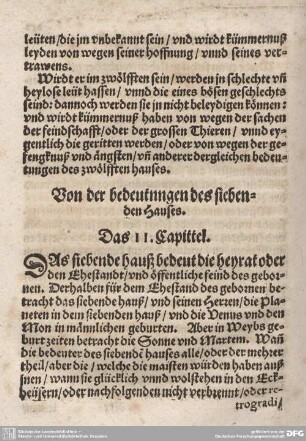 leüten/die jm vnbekannt sein/vnd wirdt kümmernuß
leyden von wegen seiner hoffnung/vnnd seines ver-
trawens.
Wirdt er im zwölfften sein/werden jn schlechte vñ
heylose leüt hassen/vnnd die eines bösen geschlechts
seind: dannoch werden sie jn nicht beleydigen können:
vnd wirdt kümmernuß haben von wegen der sachen
der feindschafft/oder der grossen Thieren/vnnd ey-
gentlich die geritten werden/oder von wegen der ge-
fengknuß vnd ängsten/vñ anderer dergleichen bedeu-
tungen des zwölfften hauses.
Von der bedeutungen des sieben-
den Hauses.
Das 11. Capittel.
DAs siebende hauß bedeut die heyrat oder
den Ehestandt/vnd öffentliche feind des gebor-
nen. Derhalben für dem Ehestand des gebornen be-
tracht das siebende hauß/vnd seinen Herzen/die Pla-
neten in dem siebenden hauß/vnd die Venus vnd den
Mon in männlichen geburten. Aber in Weybs ge-
burt zeiten betracht die Sonne vnd Martem. Wañ
die bedeuter des siebendē hauses alle/oder der mehrer
theil/aber die/welche die maisten würden haben auß
jnen/wann sie glücklich vnnd wolstehen in den Eck-
heüsern/oder nachfolgenden nicht verbrennt/oder re-
trogradi/